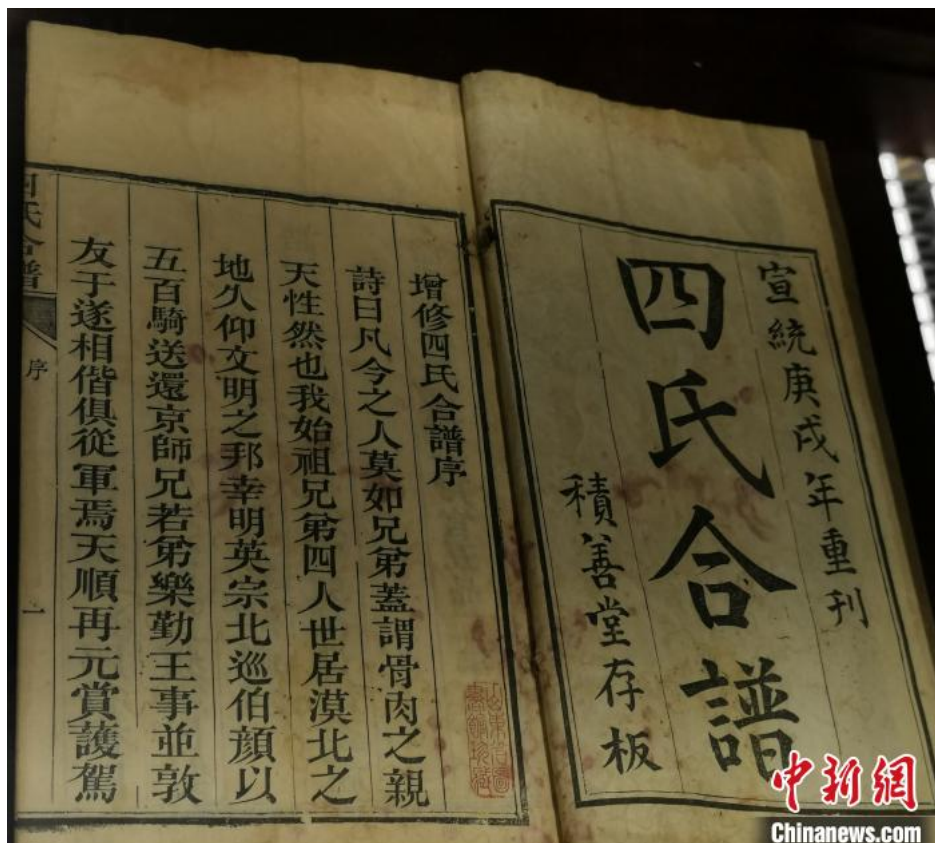 宣統庚戌年重刊
四氏合譜
積善堂存板
增修四氏合譜序
詩曰凡今之人莫如兄弟蓋謂骨肉之親
天性然也我始祖兄弟四人世居漠北之
地久仰文明之邦幸明英宗北巡伯顔以
五百騎送還京師兄若弟樂勤王事並敦
友于遂相偕俱從軍焉天順再元賞護駕
四氏合譜
序
一
中新網
Chinanews.com